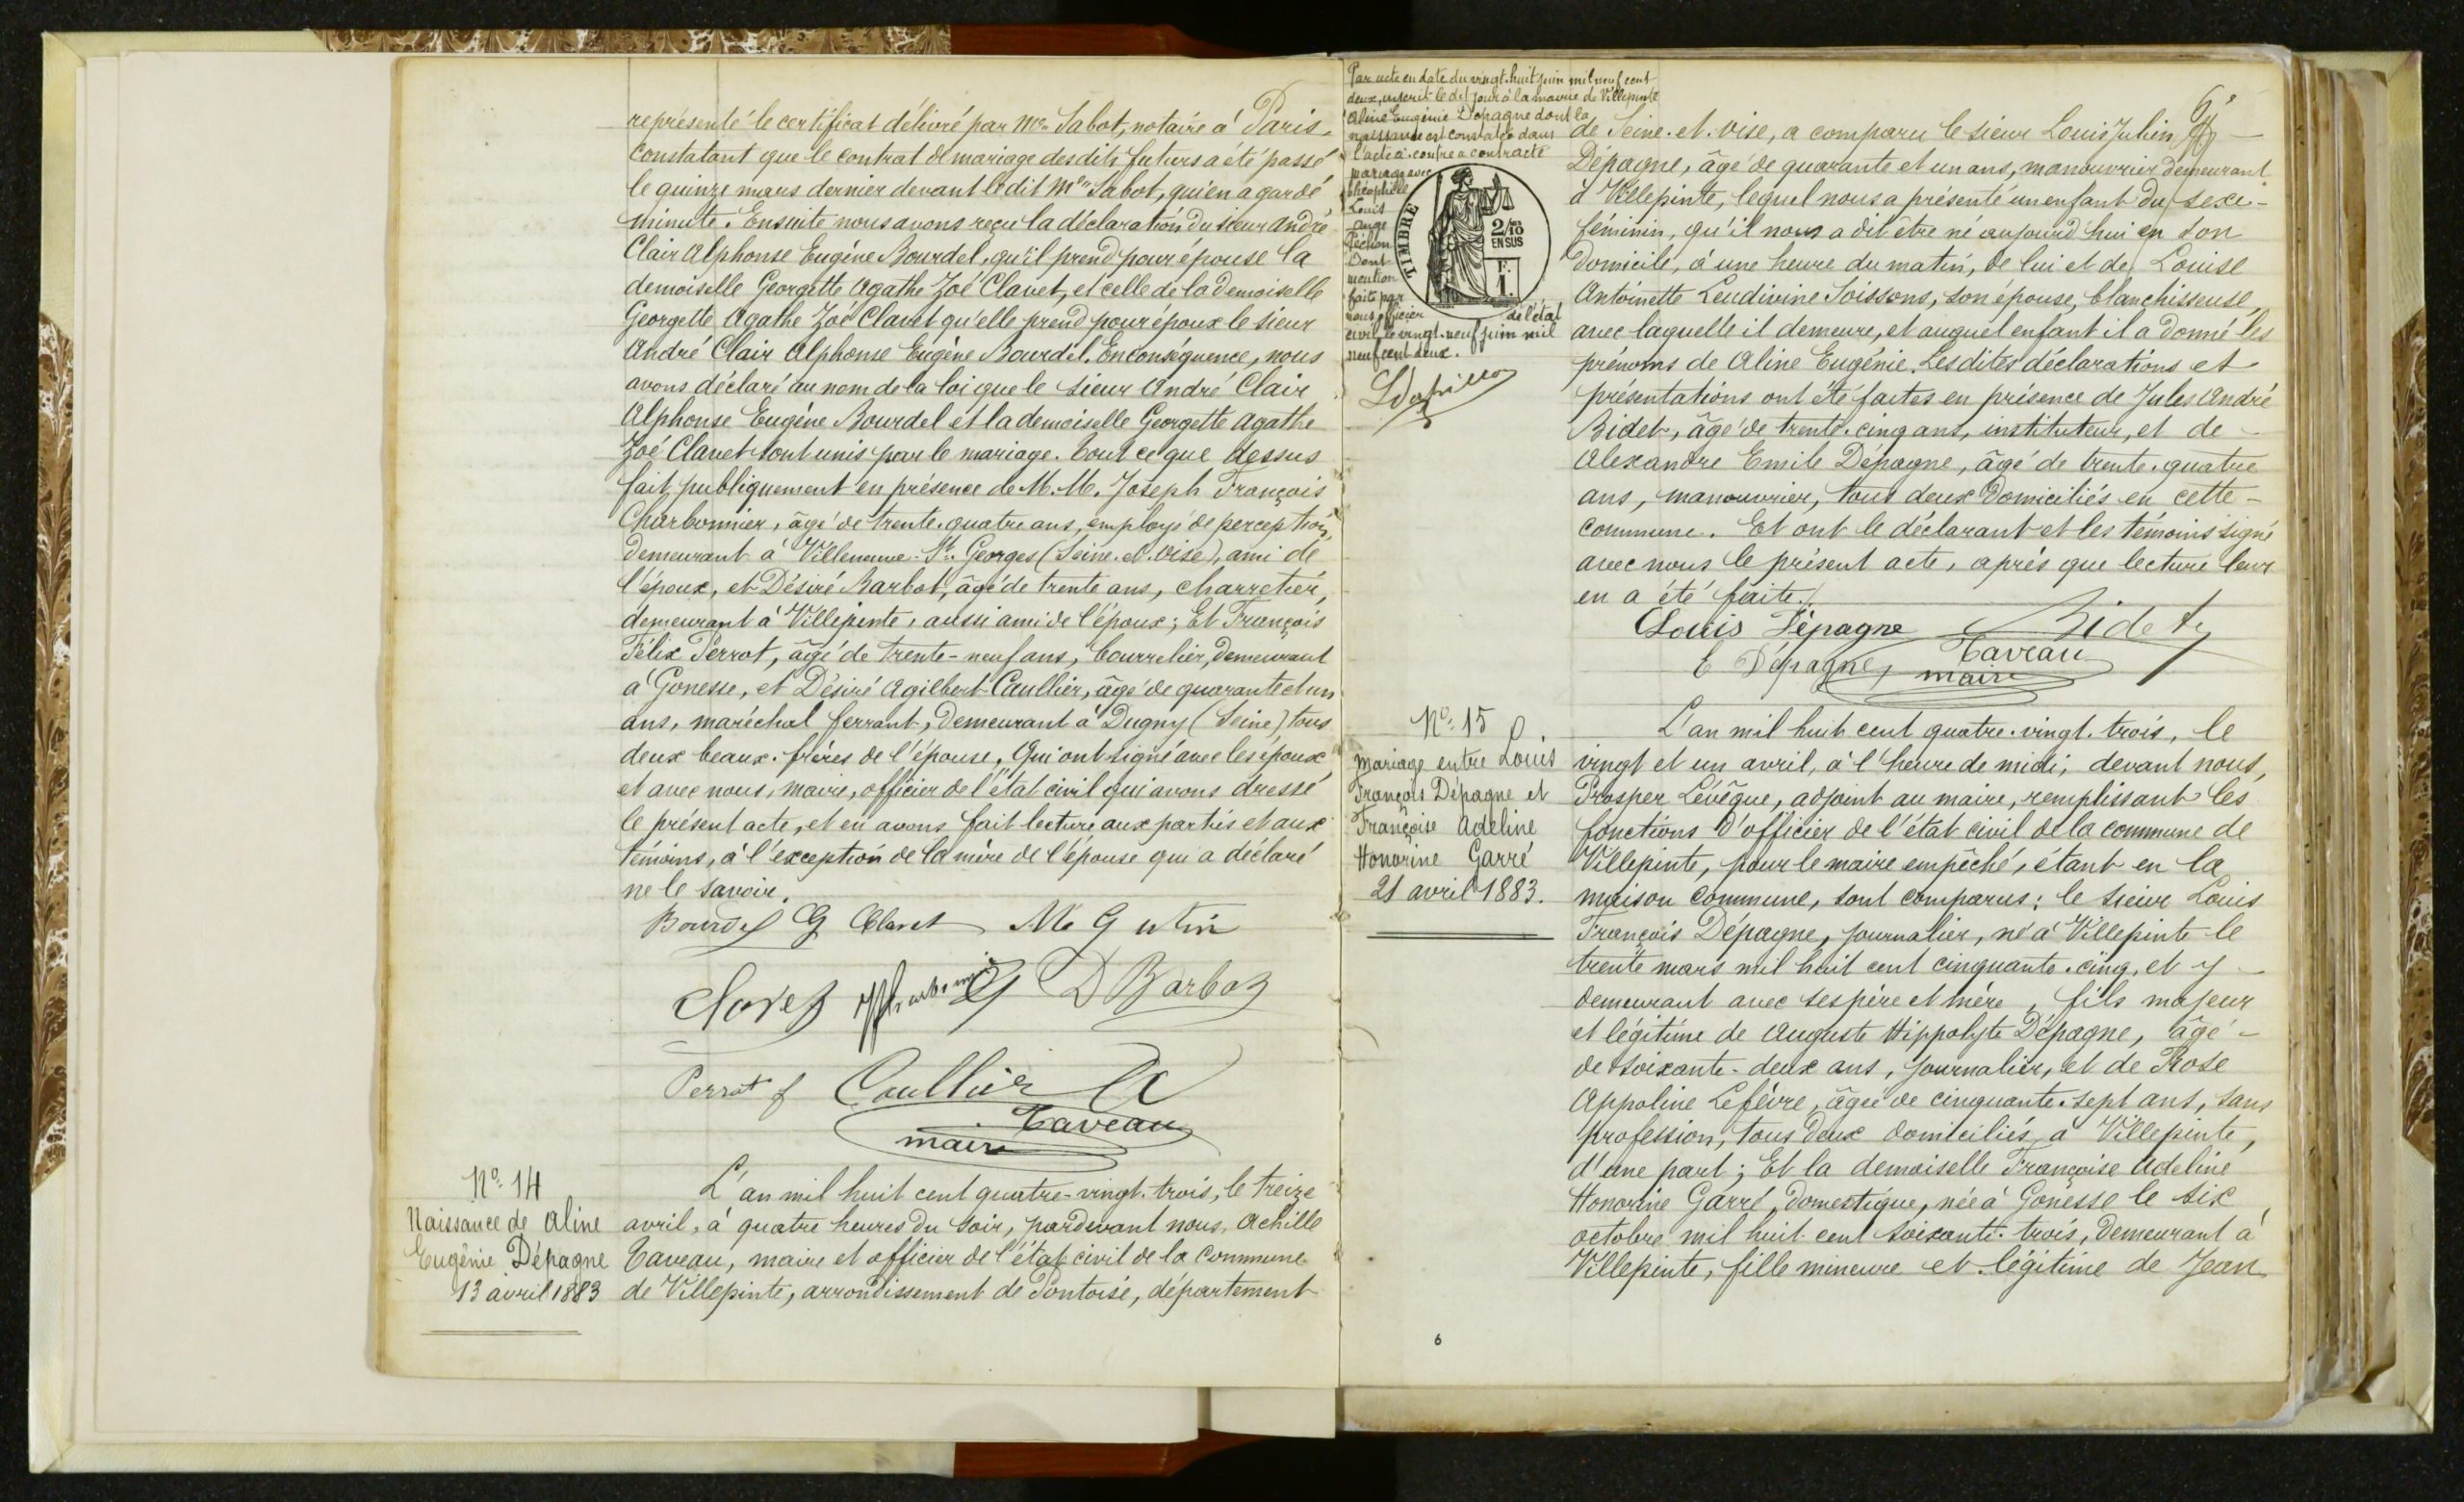 représenté le certificat délivré par Me Sabot, notaire à Paris,
constatant que le contrat de mariage desdits futurs a été passé
le quinze mars dernier devant ledit Me Sabot, qui en a gardé
minute. Ensuite nous avons reçu la déclaration du sieur André
Clair Alphonse Eugène Bourdel, qu'il prend pour épouse la
demoiselle Georgette Agathe Zoé Clavet, et celle de la demoiselle
Georgette Agathe Zoé Clavet qu'elle prend pour époux le sieur
André Clair Alphonse Eugène Bourdel. En conséquence, nous
avons déclaré au nom de la loi que le sieur André Clair
Alphonse Eugène Bourdel et la demoiselle Georgette Agathe
Zoé Clavet sont unis par le mariage. Tout ce que dessus
fait publiquement en présence de M.M. Joseph François
Charbonnier, âgé de trente-quatre ans, employé de perception,
demeurant à Villeneuve-St-Georges (Seine-et-Oise), ami de
l'époux, et Désiré Barbot, âgé de trente ans, charretier,
demeurant à Villepinte, aussi ami de l'époux; Et François
Félix Perrot, âgé de trente-neuf ans, bourrelier, demeurant
à Gonesse, et Désiré Agilbert Caullier, âgé de quarante et un
ans, maréchal ferrant, demeurant à Dugny (Seine) tous
deux beaux-frères de l'épouse, Qui ont signé avec les époux
et avec nous, maire, officier de l'état civil qui avons dressé
le présent acte, et en avons fait lecture aux parties et aux
témoins, à l'exception de la mère de l'épouse qui a déclaré
ne le savoir.
Bourdel G Clavet
D Barbot
Perrot f Caullier
Taveau
maire
No. 14
Naissance de Aline
Eugénie Dépagne
13 avril 1883
L'an mil huit cent quatre-vingt-trois, le treize
avril, à quatre heures du soir, pardevant nous, Achille
Taveau, maire et officier de l'état civil de la commune
de Villepinte, arrondissement de Pontoise, département
Par acte en date du vingt-huit juin mil neuf cent
deux, inscrit le dit jour à la mairie de Villepinte
Aline Eugénie Dépagne dont la
naissance est constatée dans
l'acte ci-contre a contracté
mariage avec
Théophile
Louis
Ange
Péchon
Dont
mention
faite par
nous officier
de l'état
civil le vingt-neuf juin mil
neuf cent deux.
TIMBRE
2/10
EN SUS
F.
1.
6
de Seine-et-Oise, a comparu le sieur Louis Julien
Dépagne, âgé de quarante et un ans, manouvrier demeurant
à Villepinte, lequel nous a présenté un enfant du sexe
féminin, qu'il nous a dit être né aujourd'hui en son
domicile, à une heure du matin, de lui et de Louise
Antoinette Leudivine Soissons, son épouse, blanchisseuse,
avec laquelle il demeure, et auquel enfant il a donné les
prénoms de Aline Eugénie. Lesdites déclarations et
présentations ont été faites en présence de Jules André
Bidet, âgé de trente-cinq ans, instituteur, et de
Alexandre Emile Dépagne, âgé de trente-quatre
ans, manouvrier, tous deux domiciliés en cette
commune. Et ont le déclarant et les témoins signé
avec nous le présent acte, après que lecture leur
en a été faite.
Louis Dépagne Bidet
E Dépagne Taveau
maire
No. 15
Mariage entre Louis
François Dépagne et
Françoise Adeline
Honorine Garré
21 avril 1883.
L'an mil huit cent quatre-vingt-trois, le
vingt et un avril, à l'heure de midi, devant nous,
Prosper Lévêque, adjoint au maire, remplissant les
fonctions d'officier de l'état civil de la commune de
Villepinte, pour le maire empêché, étant en la
maison commune, sont comparus: le sieur Louis
François Dépagne, journalier, né à Villepinte le
trente mars mil huit cent cinquante-cinq, et y
demeurant avec ses père et mère, fils majeur
et légitime de Auguste Hippolyte Dépagne, âgé
de soixante-deux ans, journalier, et de Rose
Appoline Lefèvre, âgée de cinquante-sept ans, sans
profession, tous deux domiciliés à Villepinte,
d'une part; Et la demoiselle Françoise Adeline
Honorine Garré, domestique, née à Gonesse le six
octobre mil huit cent soixante-trois, demeurant à
Villepinte, fille mineure et légitime de Jean
6